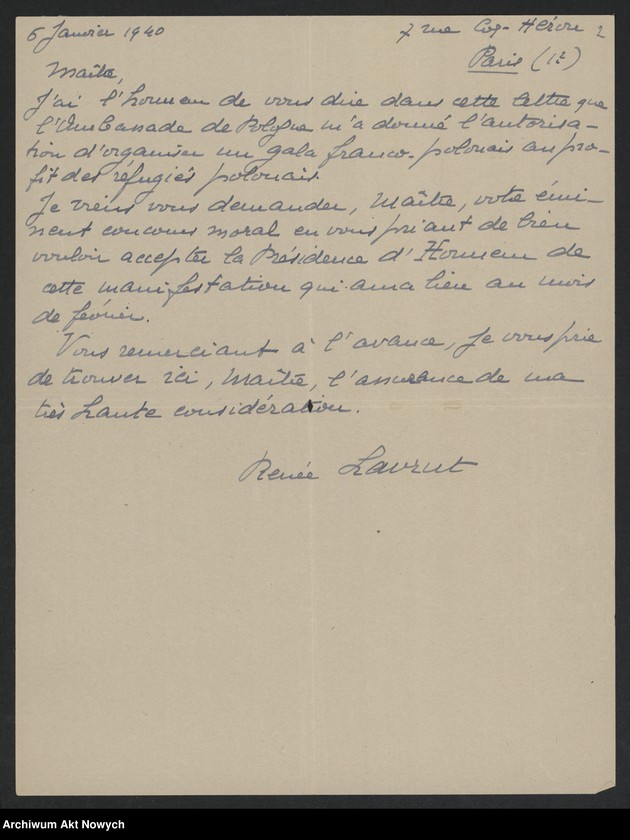 6 Janvier 1940
7 rue Coq-Héron 2
Paris (1er)
Maître,
J'ai l'honneur de vous dire dans cette lettre que
l'Ambassade de Pologne m'a donné l'autorisa-
tion d'organiser un gala franco-polonais au pro-
fit des réfugiés polonais.
Je viens vous demander, Maître, votre émi-
nent concours moral en vous priant de bien
vouloir accepter la Présidence d'Honneur de
cette manifestation qui aura lieu au mois
de février.
Vous remerciant à l'avance, je vous prie
de trouver ici, Maître, l'assurance de ma
très haute considération.
Renée Lavrut
Archiwum Akt Nowych